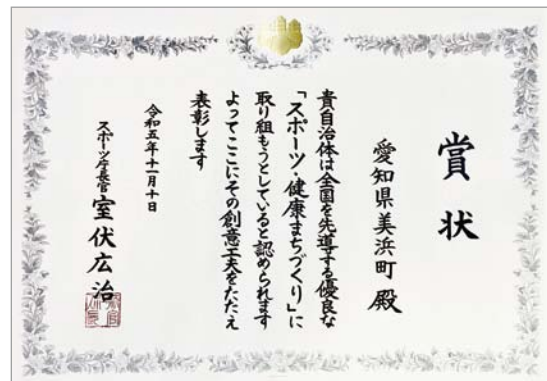 賞状
愛知県美浜町 殿
貴自治体は全国を先導する優良な
「スポーツ・健康まちづくり」に
取り組もうとしていると認められます
よってここにその創意工夫をたたえ
表彰します
令和五年十一月十日
スポーツ庁長官 室伏広治